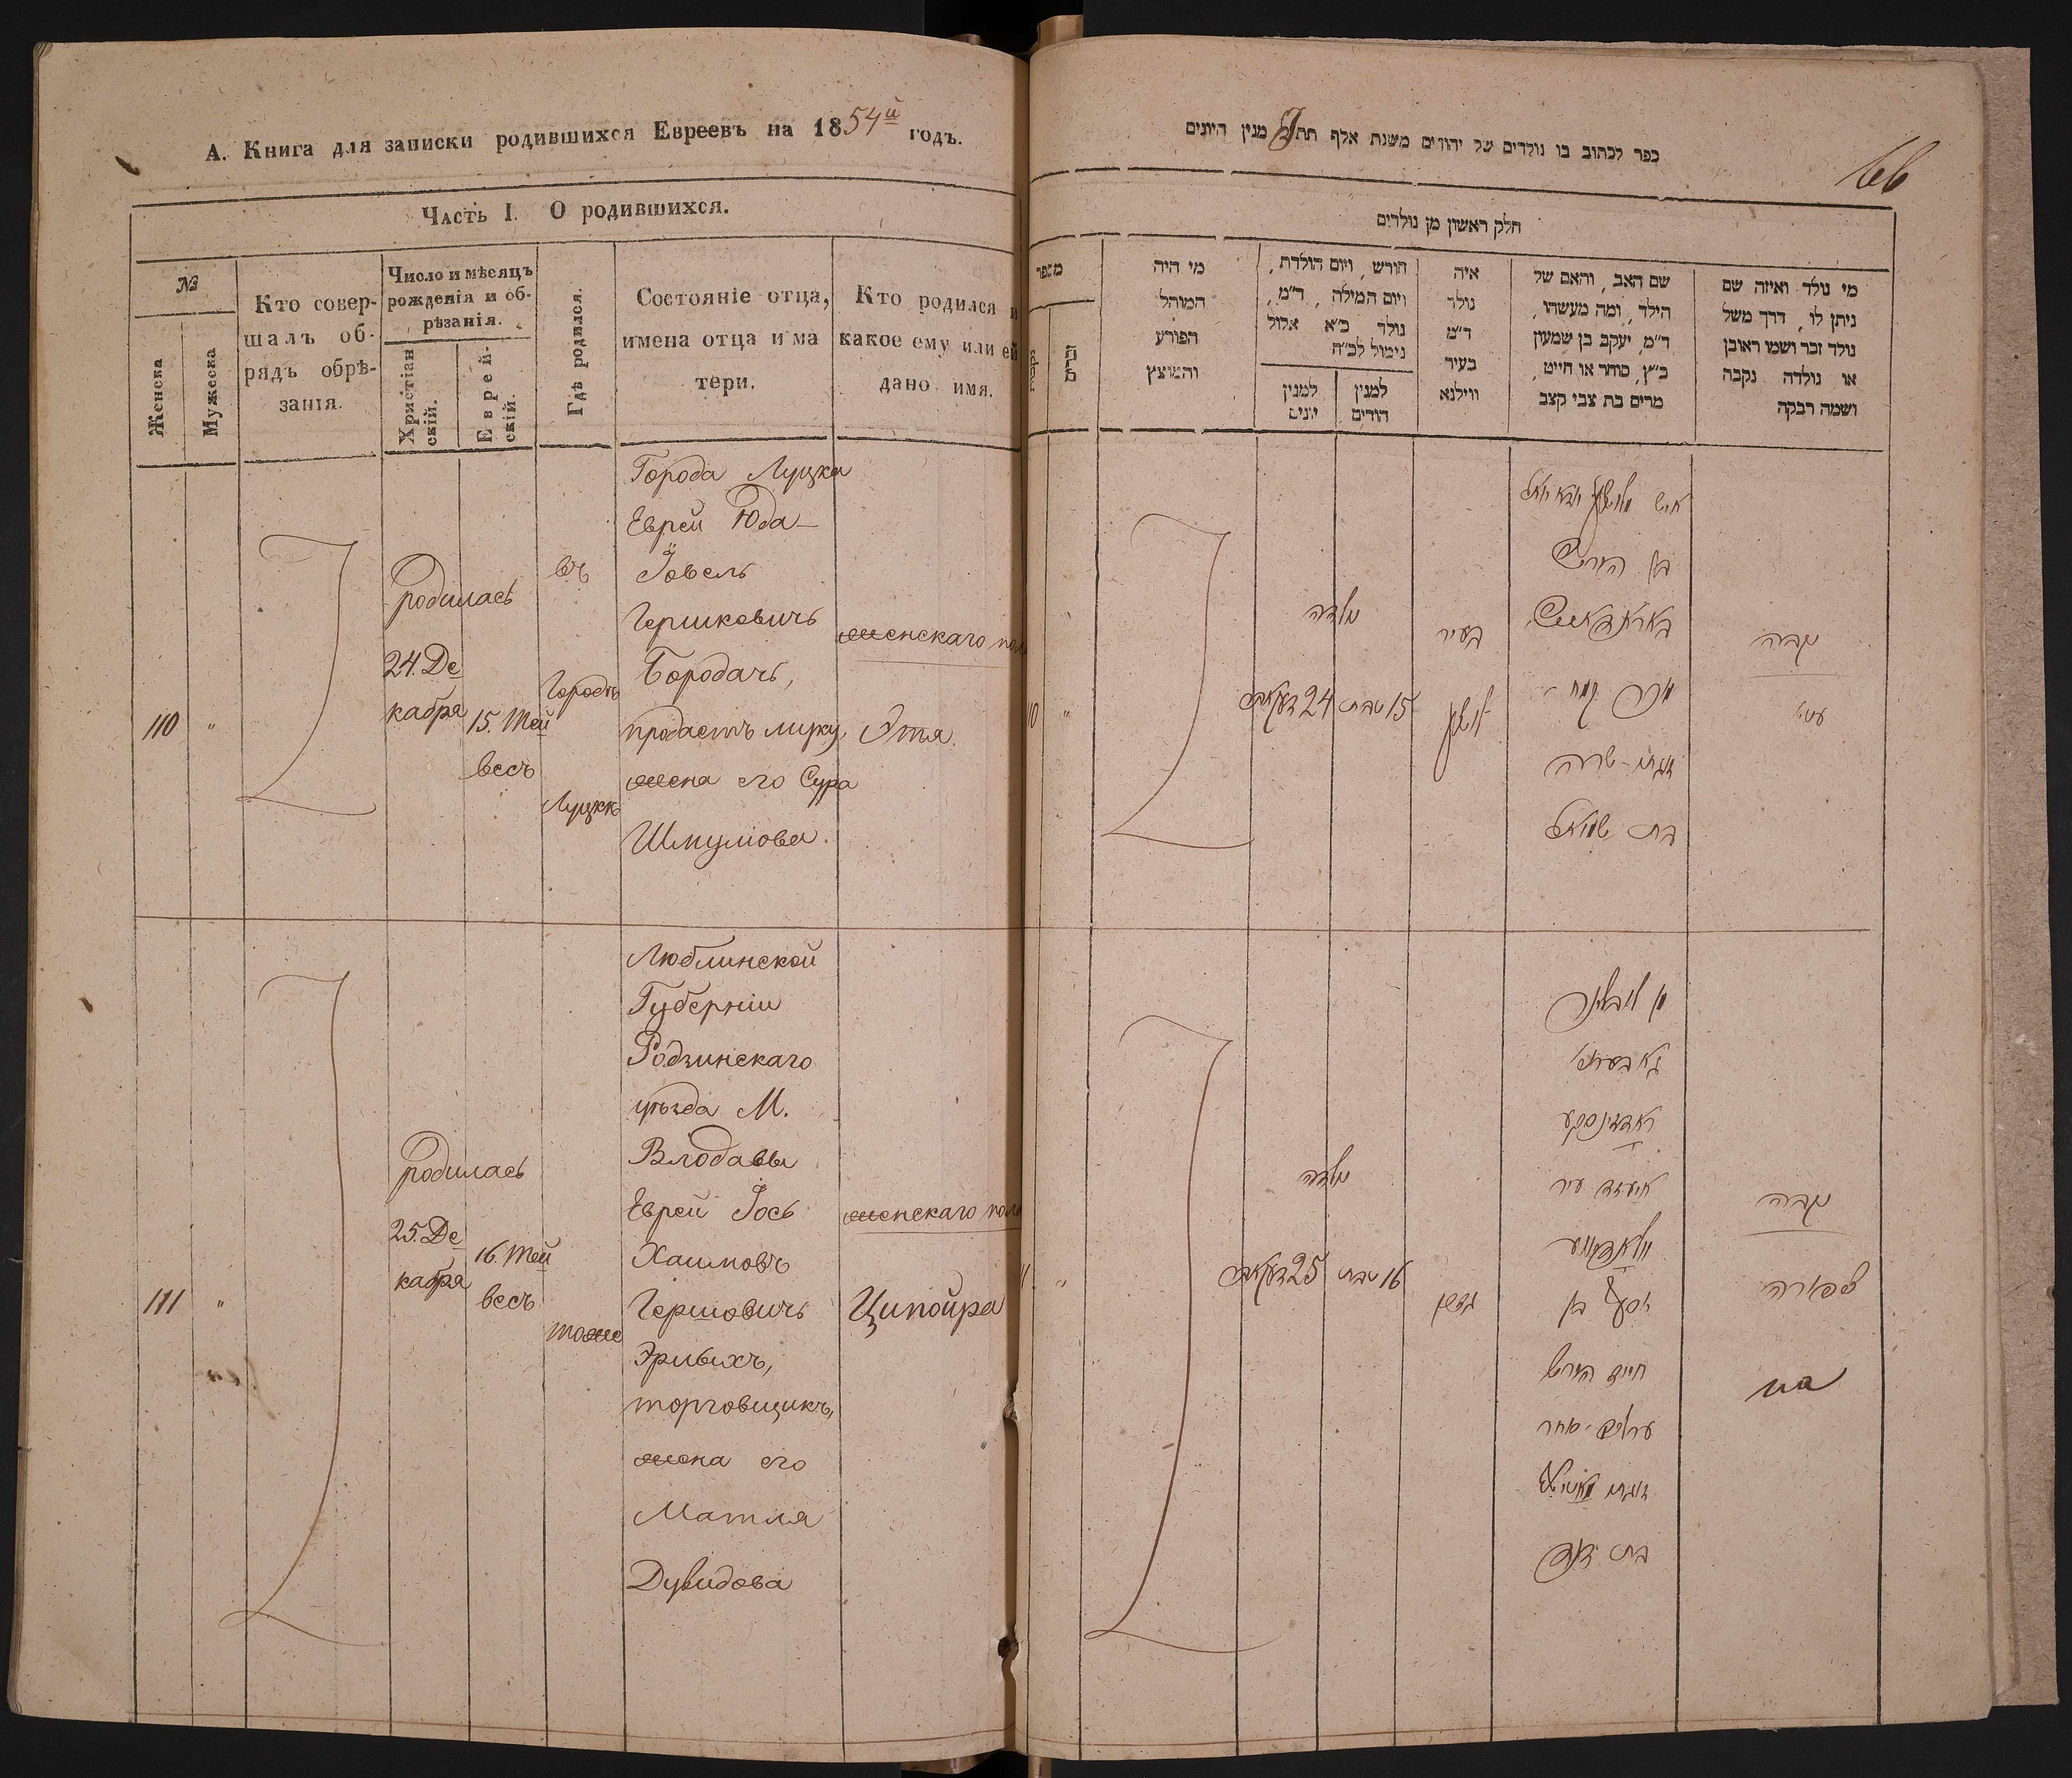 А. Книга для записки родившихся Евреевъ на 1854й годъ.
Часть I. О родившихся.
№
Женска
Мужеска
Кто совер-
шалъ об-
рядъ обрѣ-
занія.
Число и мѣсяцъ
рожденія и об-
рѣзанія.
Христіан
скій.
Еврей-
скій.
Гдѣ родился.
Состояніе отца,
имена отца и ма
тери.
Кто родился и
какое ему или ей
дано имя.
110
"
родилась
24. Де
кабря
15. Тей
весъ
въ
Городѣ
Луцкѣ
Города Луцка
Еврей Юда-
Іовель
Гершковичъ
Бородачъ,
продаетъ муку,
жена его Сура
Шмулiова.
женскаго пола
Этя.
111
"
родилась
25. Де
кабря
16. Тей
весъ
тоже
Люблинской
Губерніи
Родзинскаго
уѣзда М.
Влодавы
Еврей Іось
Хаимовъ
Гершовичъ
Эрлихъ,
торговщикъ,
жена его
Матля
Дувидова
женскаго пола
Ципойра
כפר לכתוב בו נולדים של יהודים משנת אלף תת מנין היונים
66
חלק ראשון מן נולדים
מספר
נקבות
זכרים
מי היה
המוהל
הפורע
והמוצץ
חודש, ויום הולדת,
ויום המילה, ד״מ,
נולד כ״א אלול
נימול לכ״ח
למנין
יונים
למנין
הודים
איה
נולד
ד״מ
בעיר
ווילנא
שם האב, והאם של
הילד, ומה מעשהו,
ד״מ, יעקב בן שמעון
כ״ץ, סוחר או חייט,
מרים בת צבי קצב
מי נולד ואיזה שם
ניתן לו, דרך משל
נולד זכר ושמו ראובן
או נולדה נקבה
ושמה רבקה
10
"
נולדה
24 דעקאבר
15 טבת
בעיר
לוצק
בן הירש
מוכר קמח
זוגתו שרה
בת שמואל
נקבה
עטי
11
"
נולדה
25 דעקאבר
16 טבת
מן לובלינר
ראדזינסקע
אויעזד עיר
וולאדאווע
יוסף בן
חיים הירש
ערליך סוחר
זוגתו מאטיל
בת דוד
נקבה
צפורה